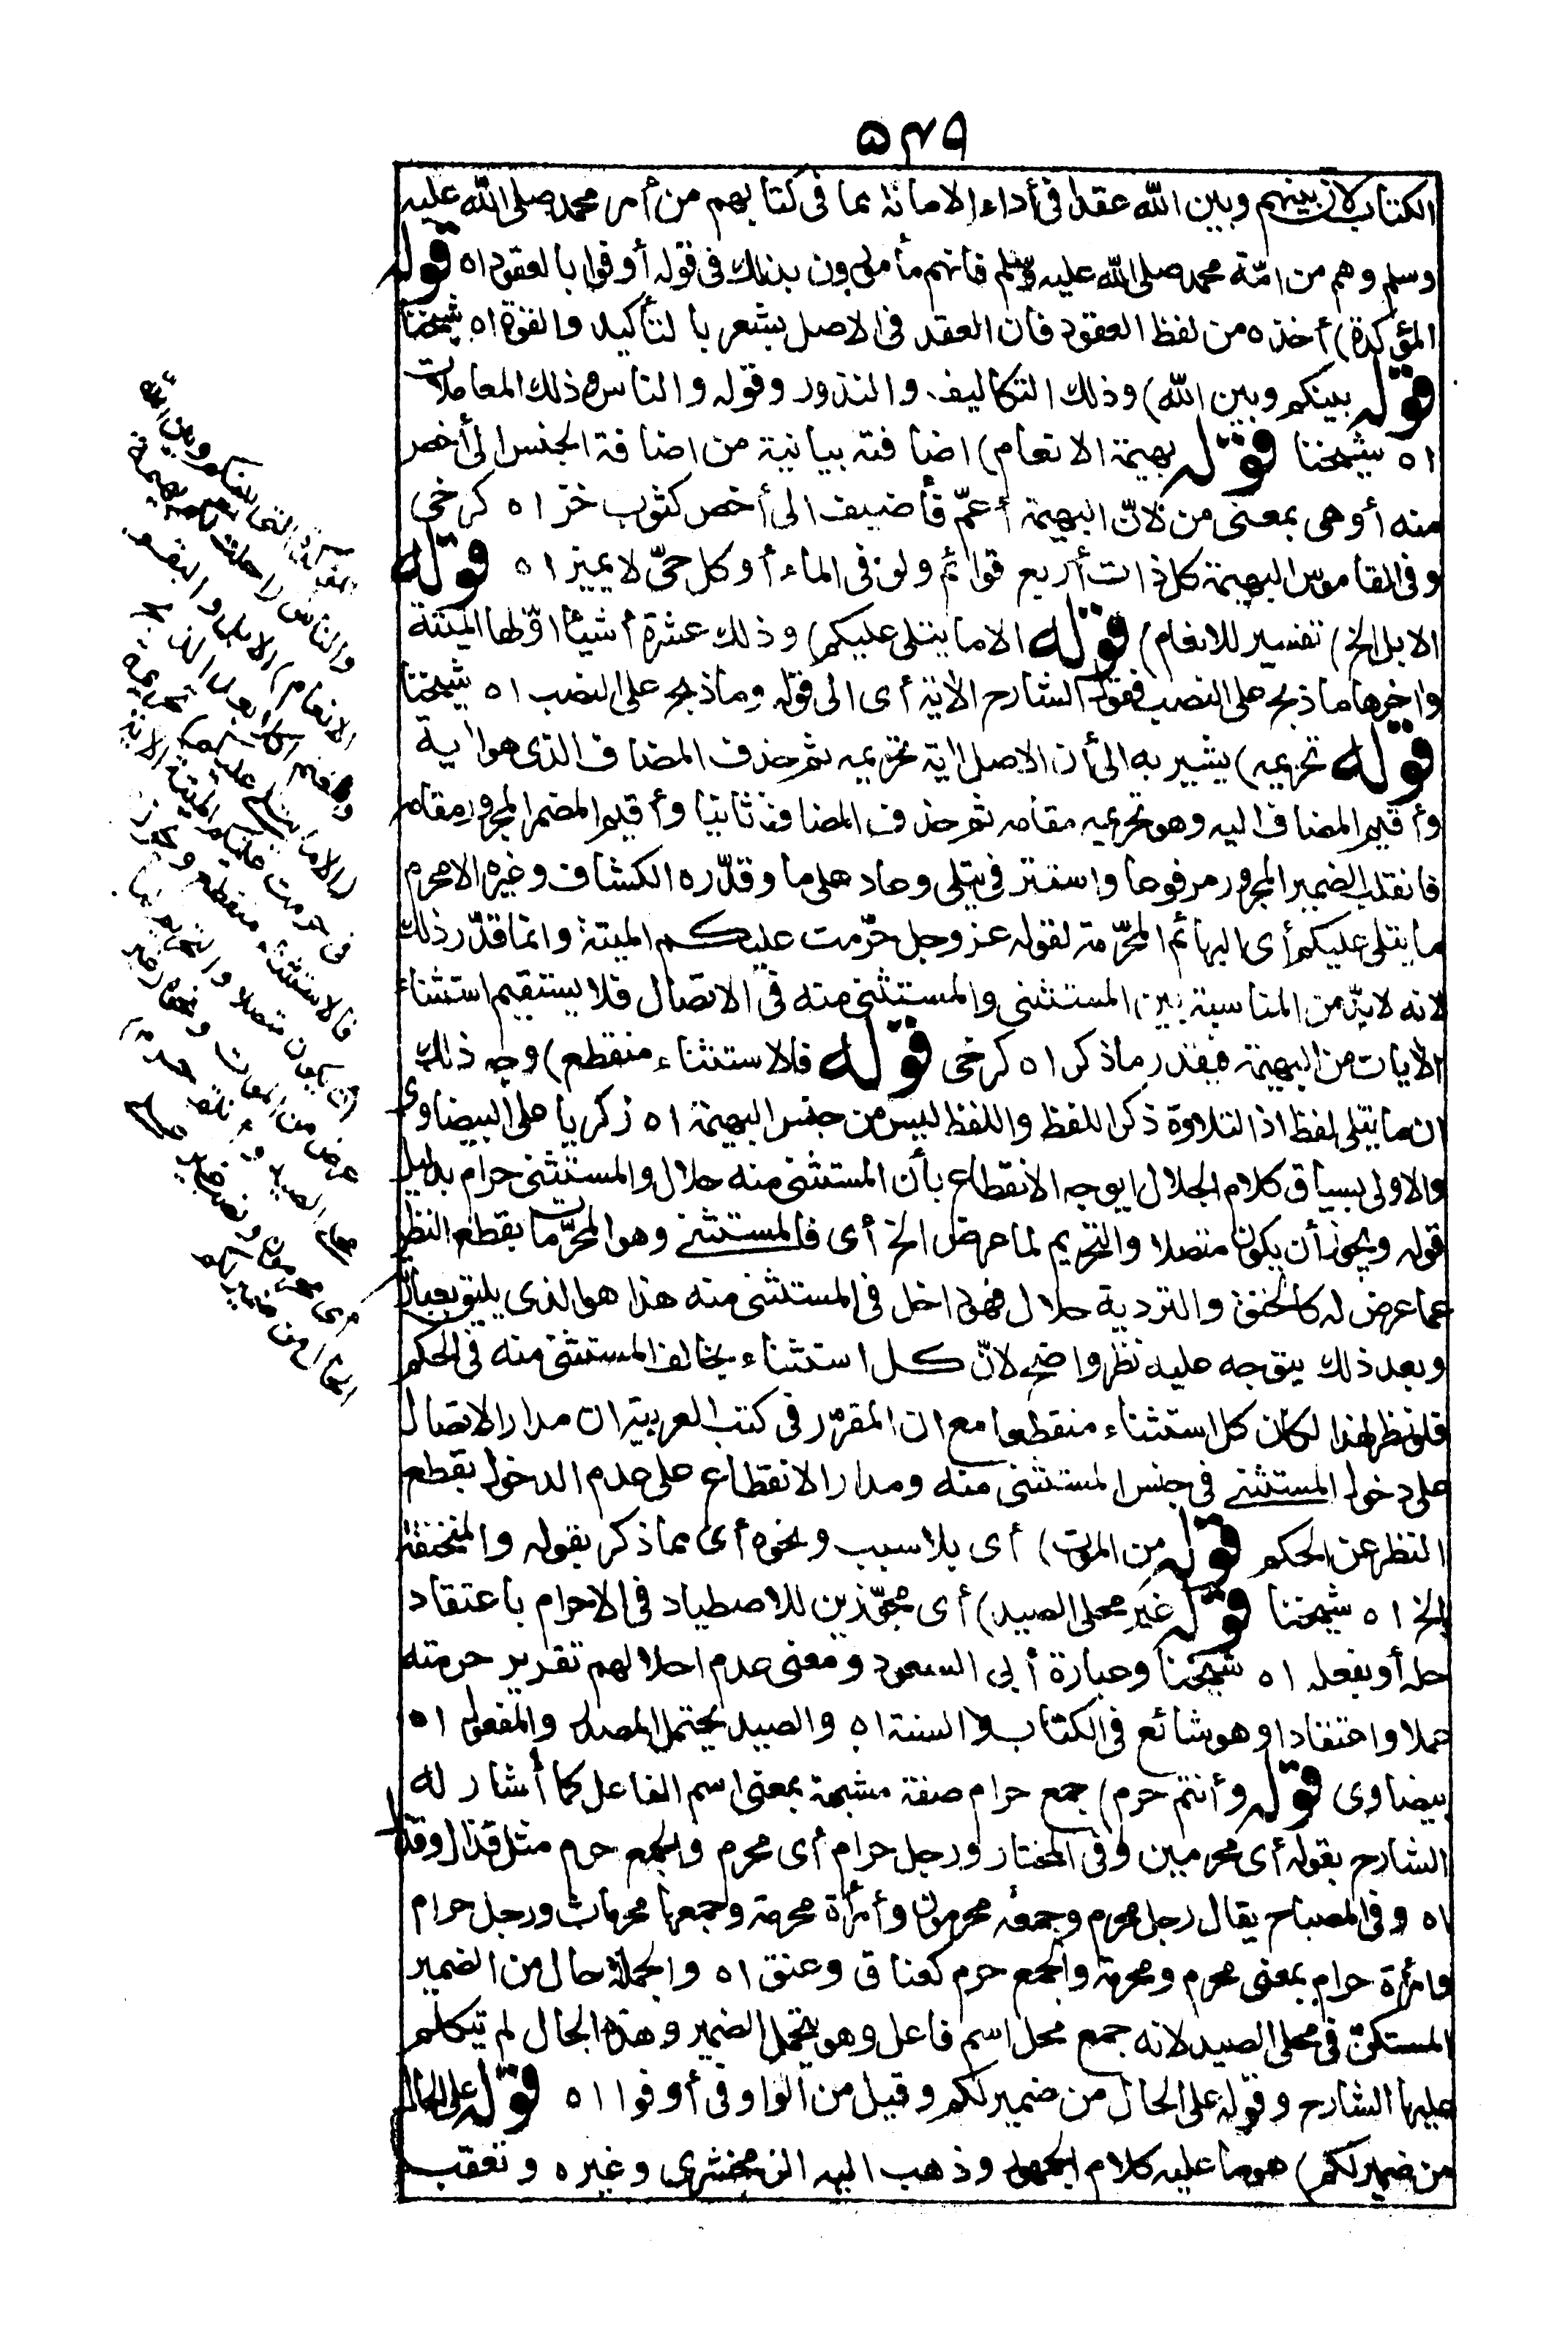 ٥٤٩
الكتاب لان بينهم وبين الله عقدا فى أداء الامانة بما فى كتابهم من أمر محمد صلى الله عليه
وسلم وهم من امّة محمد صلى الله عليه وسلم فانهم مأمورون بذلك فى قوله أوفوا بالعقود اه قوله
المؤكدة) أخذه من لفظ العقود فان العقد فى الاصل يشعر بالتأكيد والقوة اه شيخنا
قوله بينكم وبين الله) وذلك التكاليف والنذور وقوله والناس وذلك المعاملات
اه شيخنا قوله بهيمة الانعام) اضافته بيانية من اضافة الجنس الى أخص
منه أو هى بمعنى من لانّ البهيمة أعمّ فأضيف الى أخص كثوب خز اه كرخى
وفى القاموس البهيمة كل ذات أربع قوائم ولو فى الماء أو كل حىّ لا يميز اه قوله
الابل الخ) تفسير للانعام) قوله الا ما يتلى عليكم) وذلك عشرة أشيأ اوّلها الميتة
واخرها ما ذبح على النصب فقول الشارح الاية أى الى قوله وما ذبح على النصب اه شيخنا
قوله تحريمه) يشير به الى أن الاصل اية تحريمه ثم حذف المضاف الذى هو اية
وأقيم المضاف اليه وهو تحريمه مقامه ثم حذف المضاف ثانيا وأقيم المضمر المجرور مقامه
فانقلب الضمير المجرور مرفوعا واستتر فى يتلى وعاد على ما وقدّره الكشاف وغيره الا محرم
ما يتلى عليكم أى البهائم المحرّمة لقوله عز وجل حرّمت عليكم الميتة وانما قدّر ذلك
لانه لا بدّ من المناسبة بين المستثنى والمستثنى منه فى الاتصال فلا يستقيم استثناء
الايات من البهيمة فيقدر ما ذكر اه كرخى قوله فالاستثناء منقطع) وجه ذلك
ان ما يتلى لفظ اذ التلاوة ذكر اللفظ واللفظ ليس من جنس البهيمة اه زكريا على البيضاوى
والاولى بسياق كلام الجلال ان يوجه الانقطاع بأن المستثنى منه حلال والمستثنى حرام بدليل
قوله ويجوز أن يكون متصلا والتحريم لما عرض الخ أى فالمستثنى وهو المحرّمات بقطع النظر
عما عرض له كالخنق والتردية حلال فهو داخل فى المستثنى منه هذا هو الذى يليق بعبارته
وبعد ذلك يتوجه عليه نظر واضح لانّ كل استثناء يخالف المستثنى منه فى الحكم
فلو نظر لهذا لكان كل استثناء منقطعا مع ان المقرّر فى كتب العربية ان مدار الاتصال
على دخول المستثنى فى جنس المستثنى منه ومدار الانقطاع على عدم الدخول بقطع
النظر عن الحكم قوله من الموت) أى بلا سبب ونحوه أى مما ذكر بقوله والمنخنقة
الخ اه شيخنا قوله غير محلى الصيد) أى مجوّزين للاصطياد فى الاحرام باعتقاد
حله أو بفعله اه شيخنا وعبارة أبى السعود ومعنى عدم احلالهم تقرير حرمته
عملا واعتقادا وهو شائع فى الكتاب والسنة اه والصيد يحتمل المصدر والمفعول اه
بيضاوى قوله وأنتم حرم) جمع حرام صفة مشبهة بمعنى اسم الفاعل كما أشار له
الشارح بقوله أى محرمين وفى المختار ورجل حرام أى محرم والجمع حرم مثل قذال وقذل
اه وفى المصباح يقال رجل محرم وجمعه محرمون وأمرأة محرمة وجمعها محرمات ورجل حرام
وامرأة حرام بمعنى محرم ومحرمة والجمع حرم كعناق وعنق اه والجملة حال من الضمير
المستكنّ فى محلى الصيد لانه جمع محل اسم فاعل وهو يتحمل الضمير وهذه الحال لم يتكلم
عليها الشارح وقوله على الحال من ضمير لكم وقيل من الواو فى أوفوا اه قوله على الحال
من ضمير لكم) هو ما عليه كلام الجمهور وذهب اليه الزمخشرى وغيره وتعقب
المؤكدة التى بينكم وبين الله
والناس (احلت لكم بهيمة
الانعام) الابل والبقر
والغنم اكلا بعد الذبح
(الا ما يتلى عليكم) تحريمه
فى حرمت عليكم الميتة الاية
فالاستثناء منقطع ويجوز
أن يكون متصلا والتحريم لما
عرض من الموت ونحوه (غير
محلى الصيد وأنتم حرم)
أى محرمون ونصب غير على
الحال من ضمير لكم